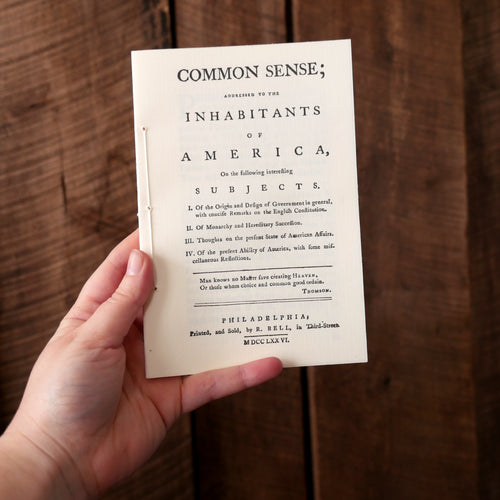 COMMON SENSE;
ADDRESSED TO THE
INHABITANTS
OF
AMERICA,
On the following interesting
SUBJECTS.
I. Of the Origin and Design of Government in general,
with concise Remarks on the English Constitution.
II. Of Monarchy and Hereditary Succession.
III. Thoughts on the present State of American Affairs.
IV. Of the present Ability of America, with some mis-
cellaneous Reflections.
Man knows no Master save creating HEAVEN,
Or those whom choice and common good ordain.
THOMSON.
PHILADELPHIA;
Printed, and Sold, by R. BELL, in Third-Street.
MDCCLXXVI.